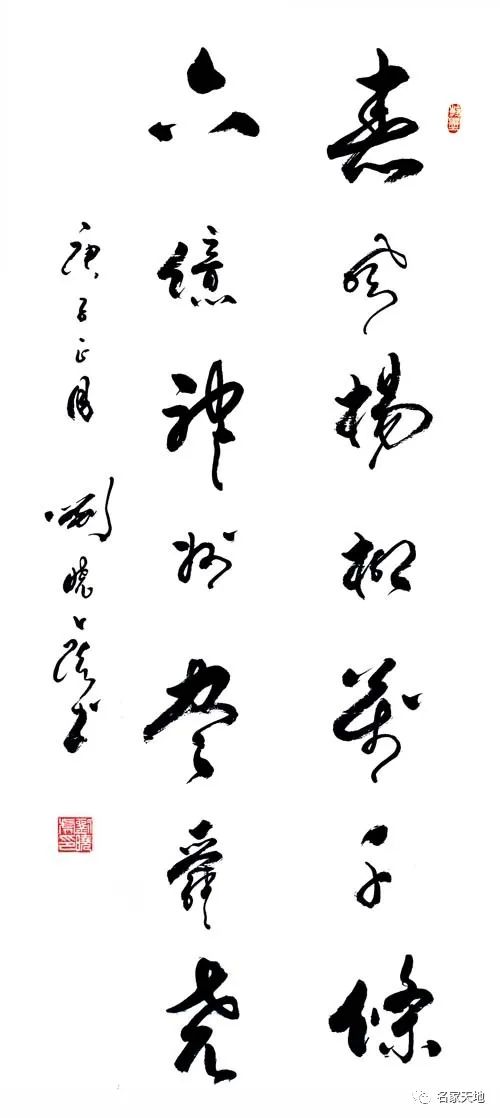 春風楊柳萬千條
六億神州盡舜堯
庚子正月 劉曉書
名家天地